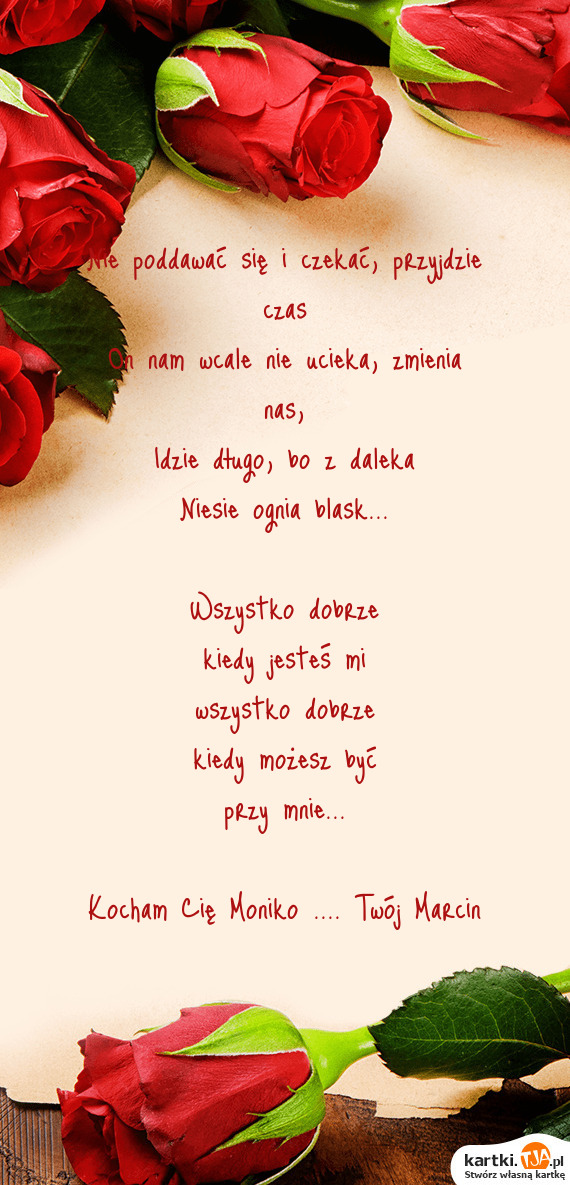 Nie poddawać się i czekać, przyjdzie
czas
On nam wcale nie ucieka, zmienia
nas,
Idzie długo, bo z daleka
Niesie ognia blask...
Wszystko dobrze
kiedy jesteś mi
wszystko dobrze
kiedy możesz być
przy mnie...
Kocham Cię Moniko .... Twój Marcin
kartki.TJA.pl
Stwórz własną kartkę